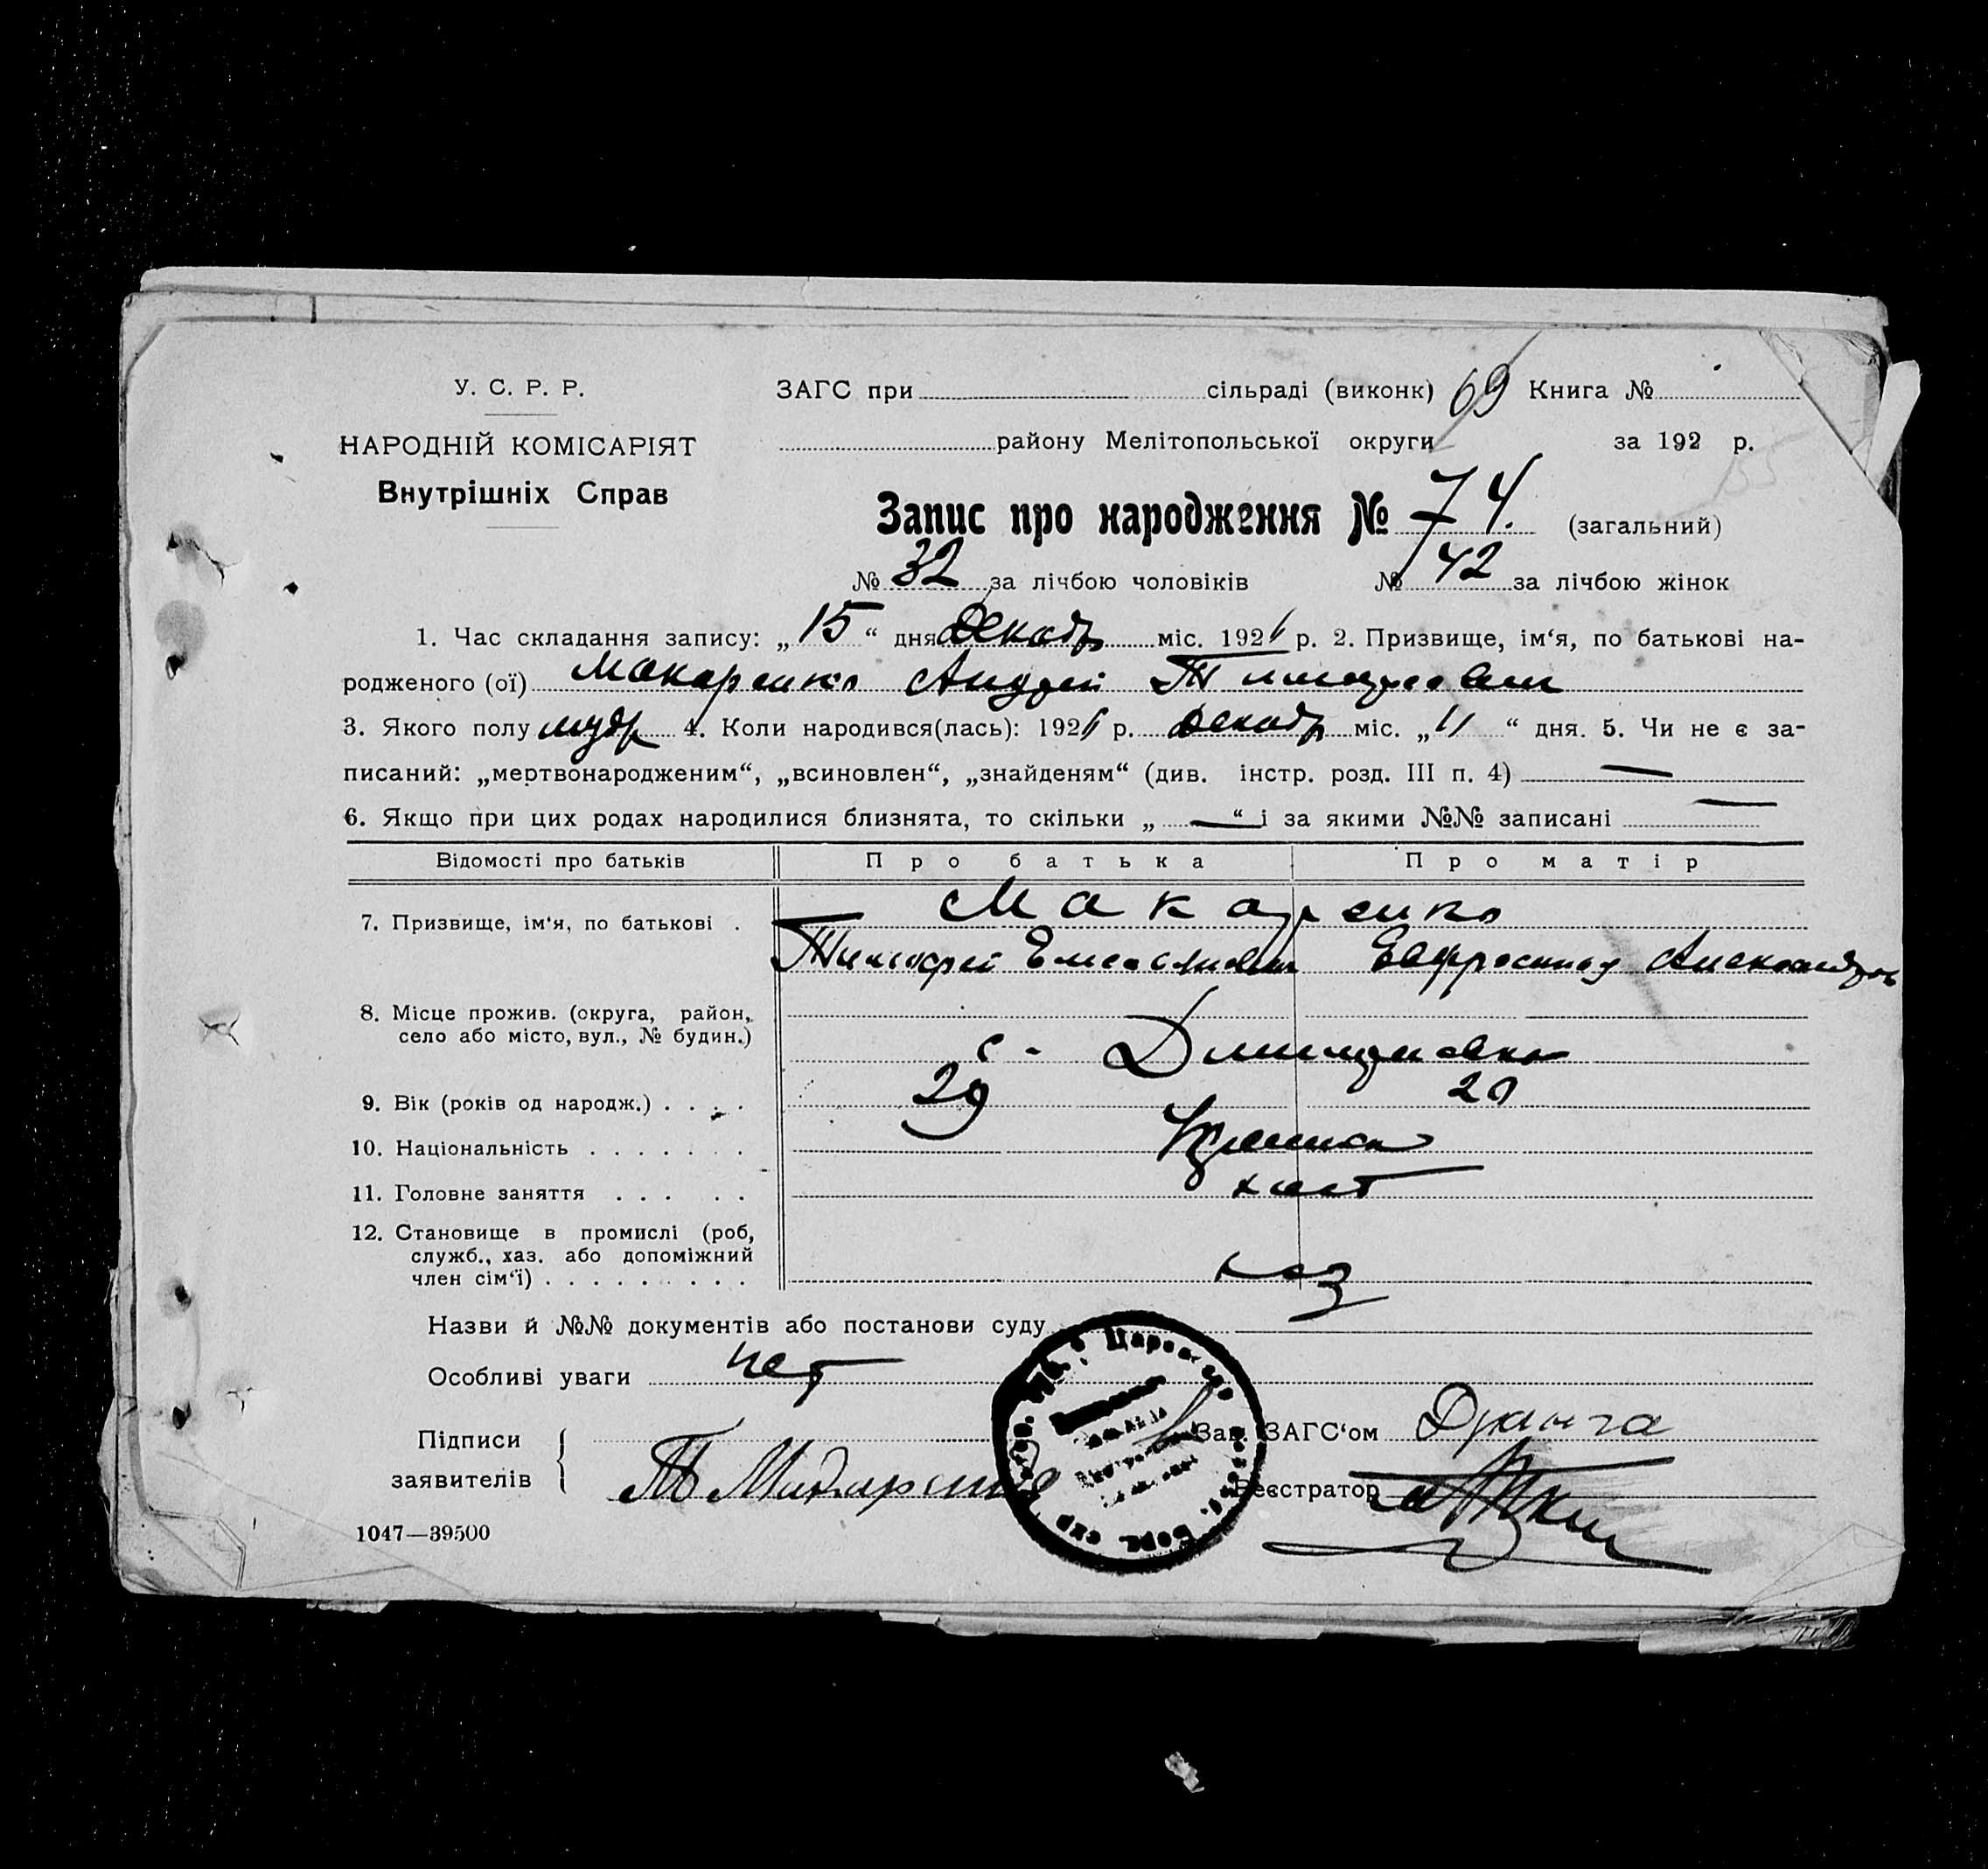 У. С. Р. Р.
НАРОДНІЙ КОМІСАРІЯТ
Внутрішніх Справ
ЗАГС при сільраді (виконк) 69 Книга №
району Мелітопольської округи за 192 р.
Запис про народження № 74. (загальний)
№ 32 за лічбою чоловіків № 42 за лічбою жінок
1. Час складання запису: „ 15 “ дня Декабр міс. 1926 р. 2. Призвище, ім‘я, по батькові на-
родженого (ої) Макаренко Андрей Тимофеевич
3. Якого полу мужр 4. Коли народився(лась): 1926 р. Декабр міс. „ 11 “ дня. 5. Чи не є за-
писаний: „мертвонародженим“, „всиновлен“, „знайденям“ (див. інстр. розд. III п. 4) —
6. Якщо при цих родах народилися близнята, то скільки „ — “ і за якими №№ записані —
Відомості про батьків Про батька Про матір
7. Призвище, ім‘я, по батькові . Макаренко
Тимофей Евфросиния
8. Місце прожив. (округа, район,
село або місто, вул., № будин.) с. Димитровка
9. Вік (років од народж.) . . . . 29 20
10. Національність . . . . . . .
11. Головне заняття . . . . . хлеб
12. Становище в промислі (роб,
служб., хаз. або допоміжний
член сім‘ї) . . . . . . . . . хоз
Назви й №№ документів або постанови суду
Особливі уваги нет
Підписи
заявителів Т Макаренко
Зав. ЗАГС‘ом Дранга
Реєстратор
1047—39500